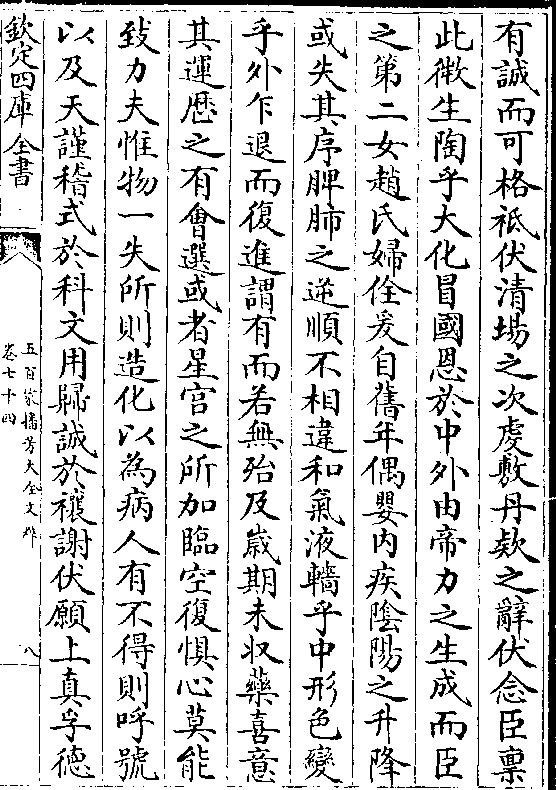 有誠而可格祗伏清場之次虔敷丹欵之辭伏念臣禀
此微生陶乎大化冒國恩於中外由帝力之生成而臣
之第二女趙氏婦佺爰自舊年偶嬰内疾陰陽之升降
或失其序脾肺之逆順不相違和氣液轖乎中形色變
乎外乍退而復進謂有而若無殆及嵗期未収藥喜意
其運歴之有會選或者星宫之所加臨空復惧心莫能
致力夫惟物一失所則造化以為病人有不得則呼號
以及天謹稽式於科文用歸誠於禳謝伏願上真孚德
欽定四庫全書
五百家播芳大全文粹
卷七十四
八